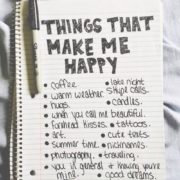 THINGS THAT
MAKE ME
HAPPY
• coffee. • late night
• warm weather. skype calls.
• hugs. • candles.
• when you call me beautiful.
• forehead kisses. • tattoos.
• art. • cute texts.
• summer time. • nicknames.
• photography. • travelling.
• you in general & knowing you're
mine. • good dreams.